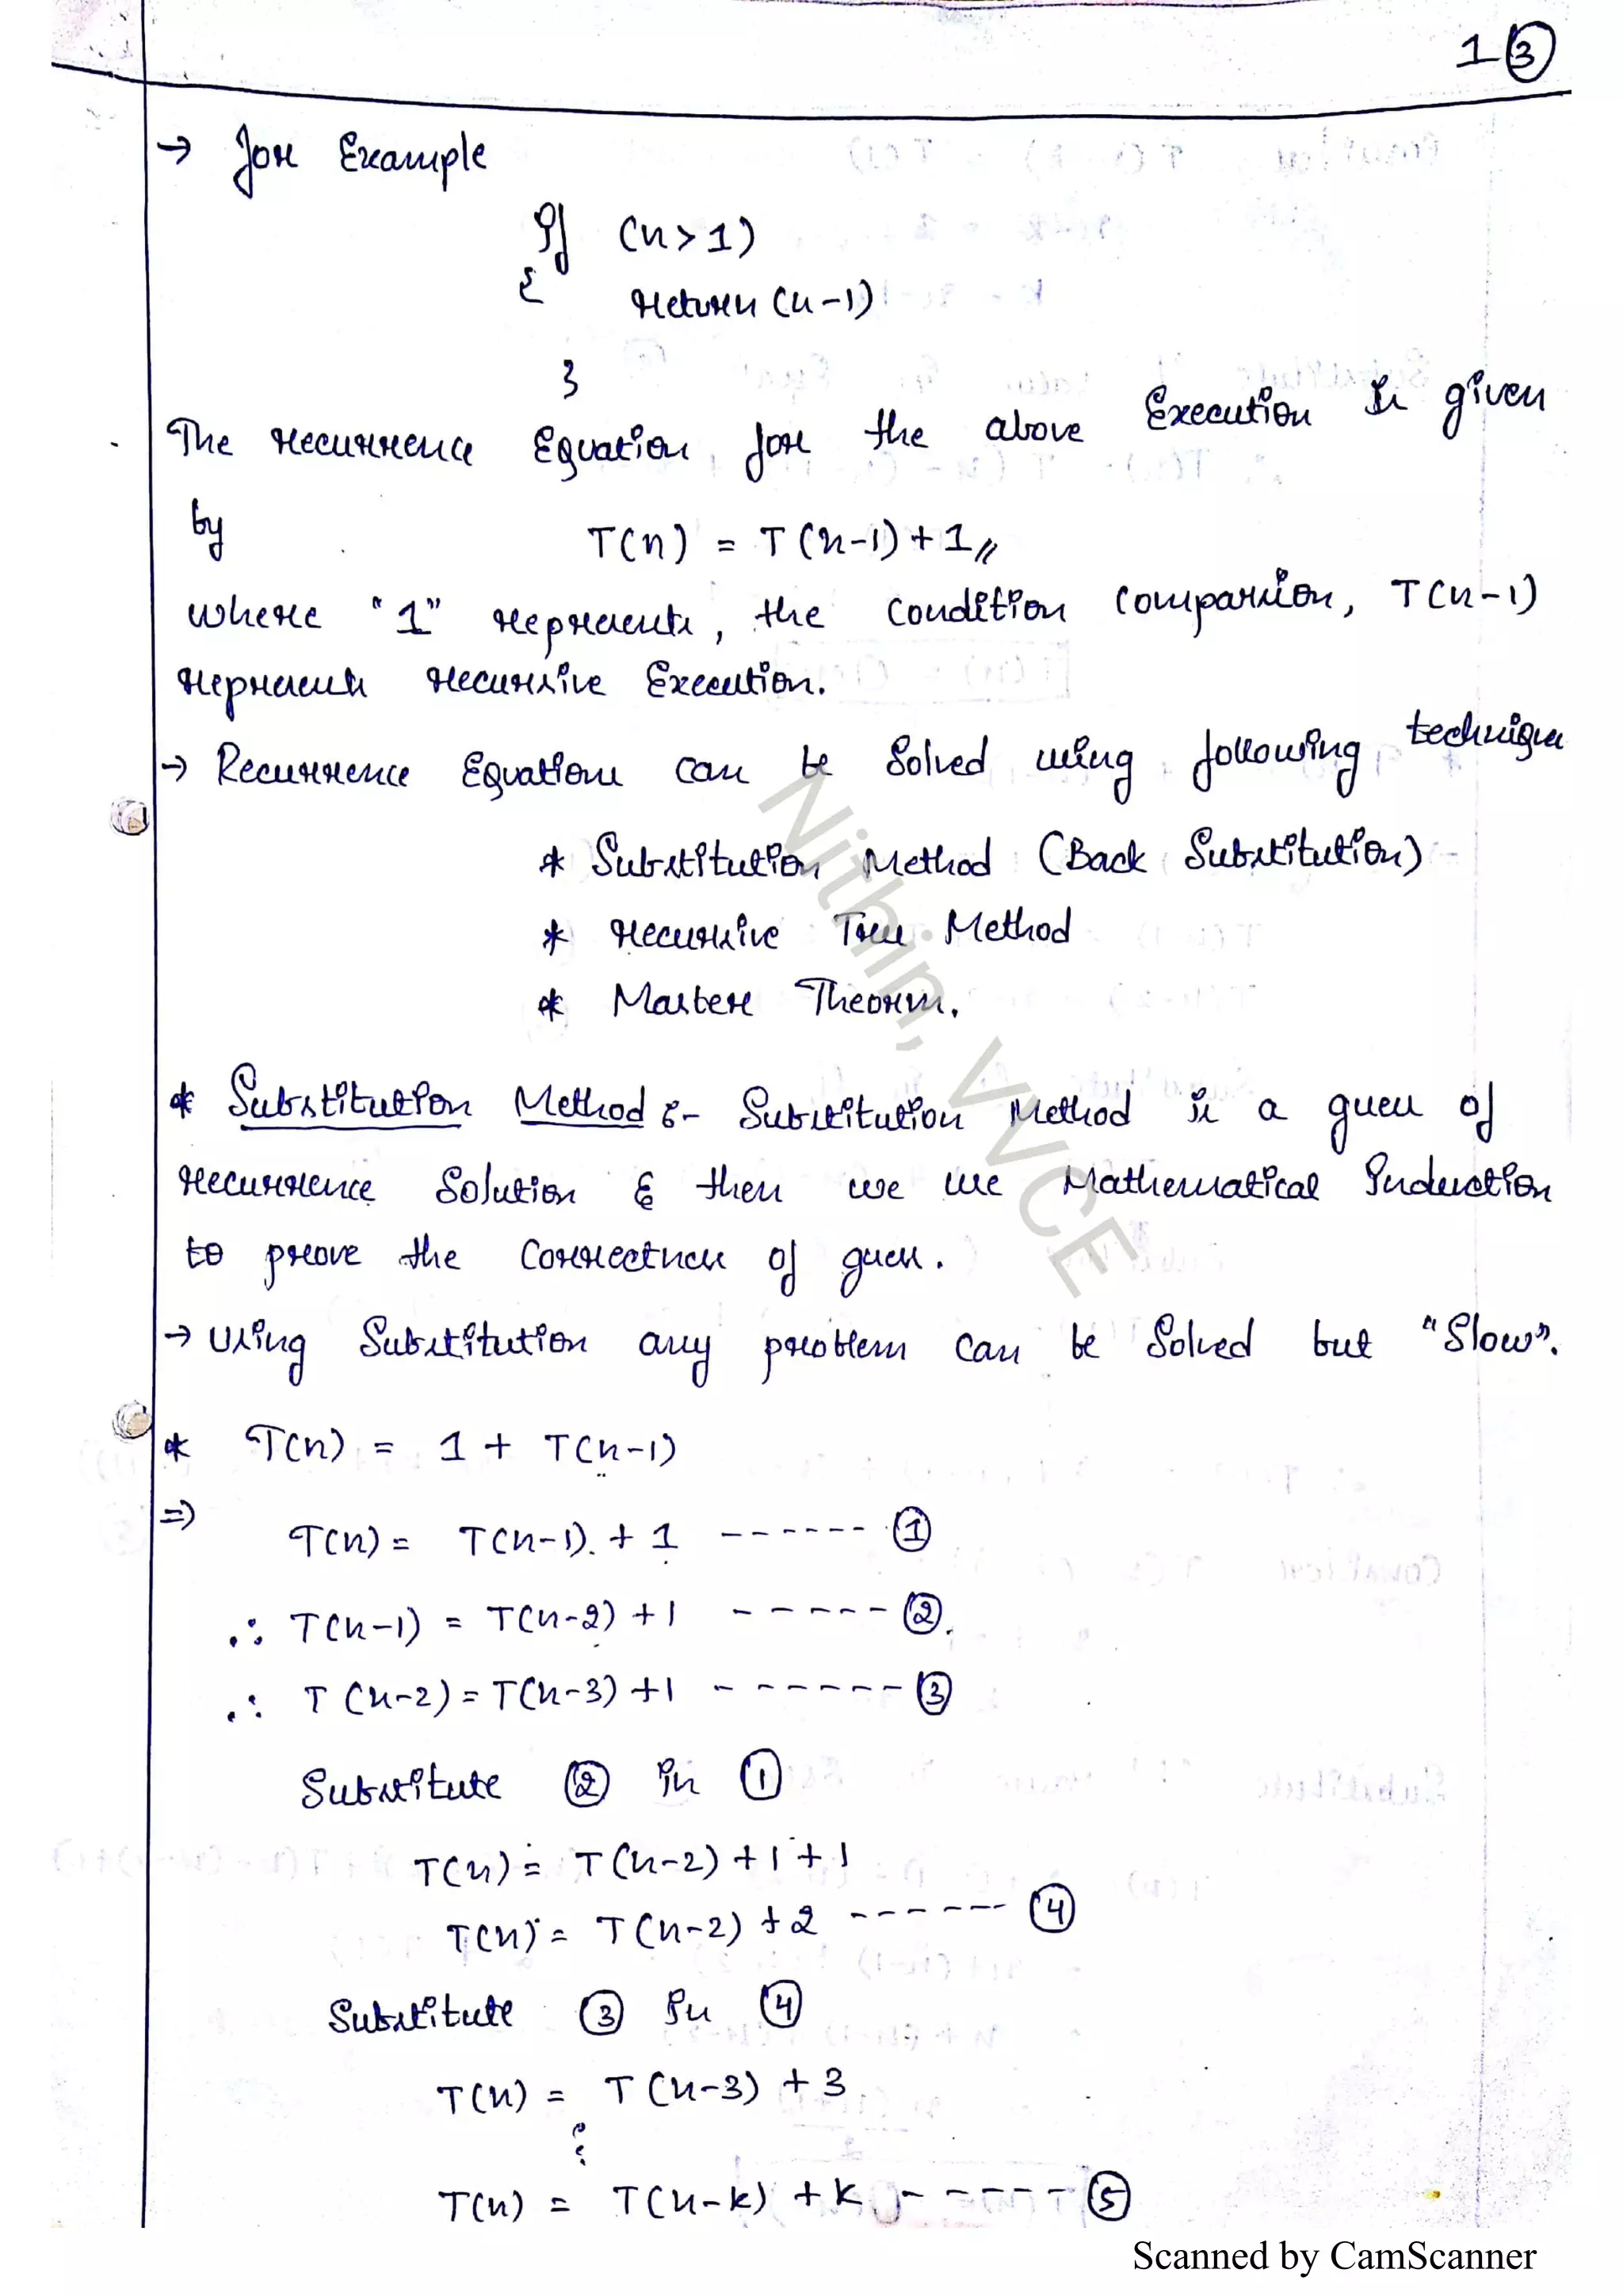 1 3
→ for Example
If (n>1)
{ return (n-1)
}
The recurrence Equation for the above Execution is given
by T(n) = T(n-1)+1//
where "1" represents, the Condition comparsion, T(n-1)
represents recursive Execution.
→ Recurrence Equations can be Solved using following technique
* Substitution Method (Back Substitution)
* recursive Tree Method
* Master Theorm.
* Substitution Method :- Substitution Method is a guess of
recurrence Solution & then we use Mathematical Induction
to prove the Correctness of guess.
→ Using Substitution any problem can be Solved but "Slow".
* T(n) = 1 + T(n-1)
⇒ T(n) = T(n-1) + 1 ------ ①
∴ T(n-1) = T(n-2) +1 ----- ②
∴ T(n-2) = T(n-3) +1 ------ ③
Substitute ② in ①
T(n) = T(n-2) +1+1
T(n) = T(n-2) +2 ------ ④
Substitute ③ in ④
T(n) = T(n-3) + 3
⋮
T(n) = T(n-k) + k ----- ⑤
Nithin, VVCE
Scanned by CamScanner